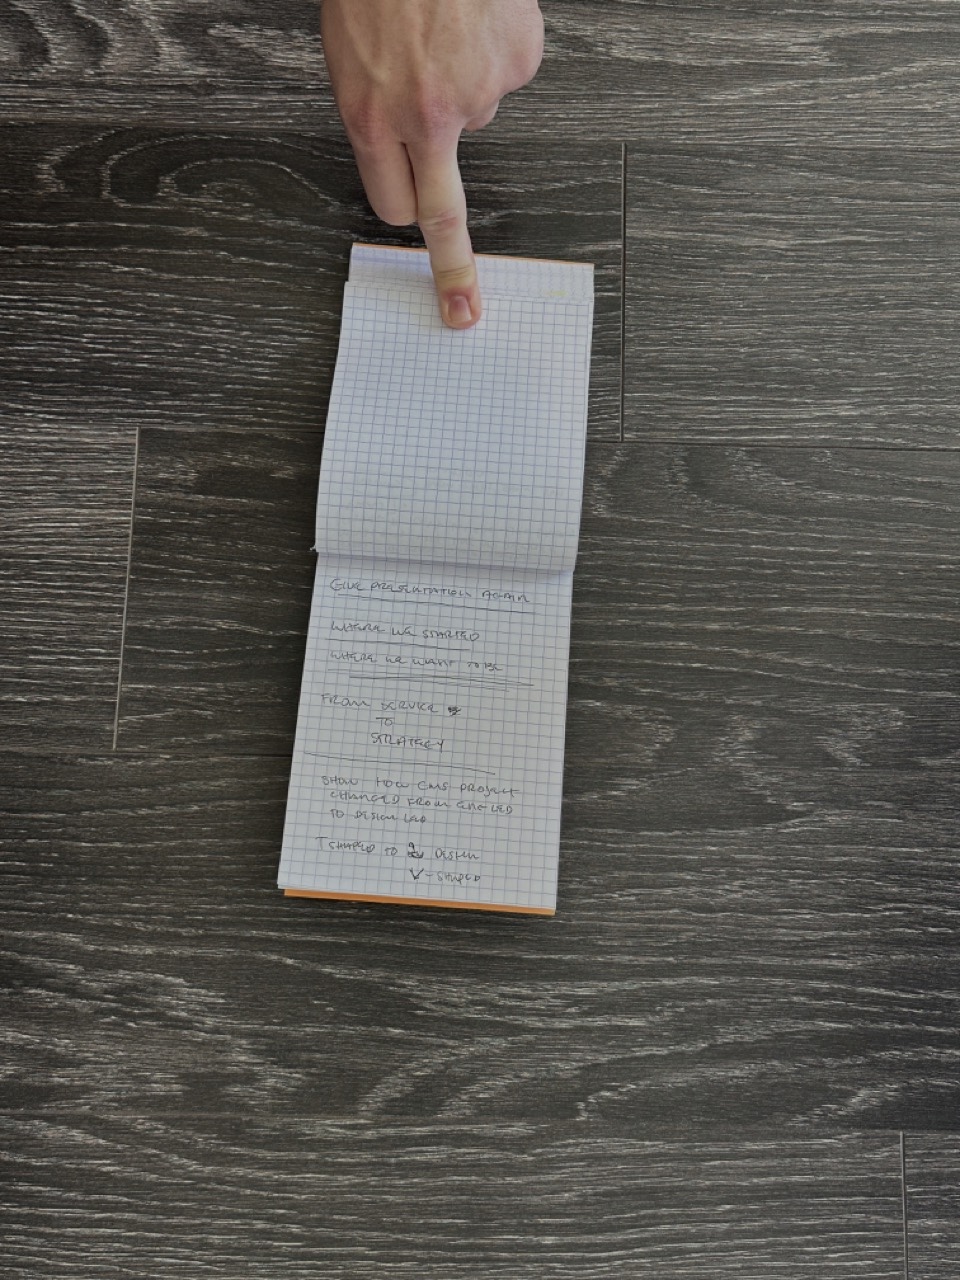 GIVE PRESENTATION AGAIN
WHERE WE STARTED
WHERE WE WANT TO BE
FROM SERVICE
TO
STRATEGY
SHOW HOW CMS PROJECT
CHANGED FROM ENG LED
TO DESIGN LED
T SHAPED TO DESIGN
V-SHAPED